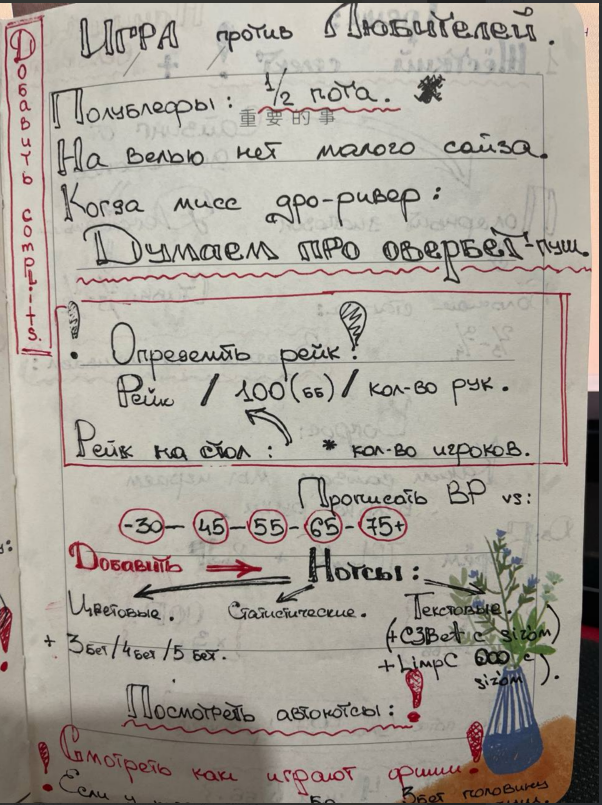 Добавить complits.
Игра против Любителей.
Полублефы: 1/2 пота.
重要的事
На велью нет малого сайза.
Когда мисс дро-ривер:
Думаем про овербет-пуш.
! Определить рейк!
Рейк / 100(бб) / кол-во рук.
Рейк на стол: * кол-во игроков.
Прописать ВР vs:
-30- 45 - 55 - 65 - 75+
Добавить → Нотсы:
Цветовые. Статистические. Текстовые.
(+C3Bet с sizом)
+ 3бет/4бет/5бет.
+LimpC с sizом).
Посмотреть автонотсы:!
! Смотреть как играют фиши!
Если у
3бет половину